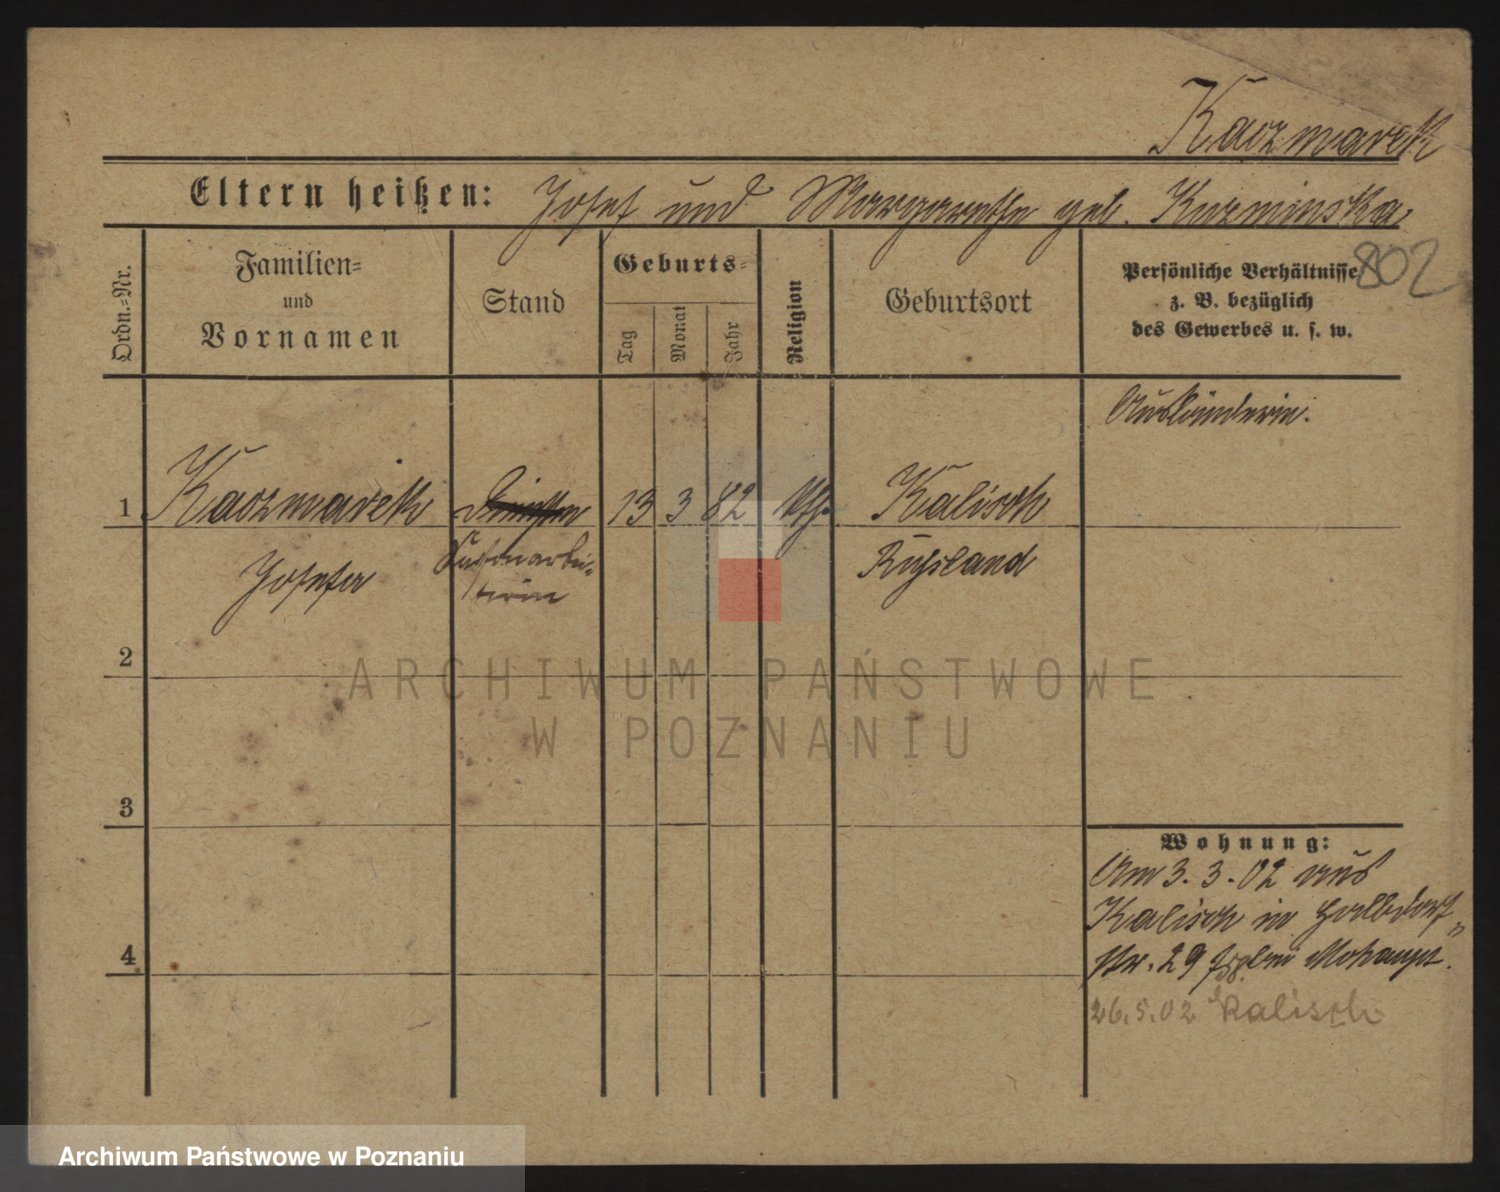 Kaczmarek
Eltern heißen: Josef und Margarethe geb. Kuzminska
802
Ordn.-Nr.
Familien-
und
Vornamen
Stand
Geburts-
Tag
Monat
Jahr
Religion
Geburtsort
Persönliche Verhältnisse
z. B. bezüglich
des Gewerbes u. s. w.
Ausländerin.
1 Kaczmarek 13 3 82 kth. Kalisch
Josefa
arbei-
terin
Rußland
2
3
4
Wohnung:
Am 3. 3. 02 aus
Kalisch in Halbdorf-
str. 29 bei
26.5.02 Kalisch
ARCHIWUM PAŃSTWOWE
W POZNANIU
Archiwum Państwowe w Poznaniu